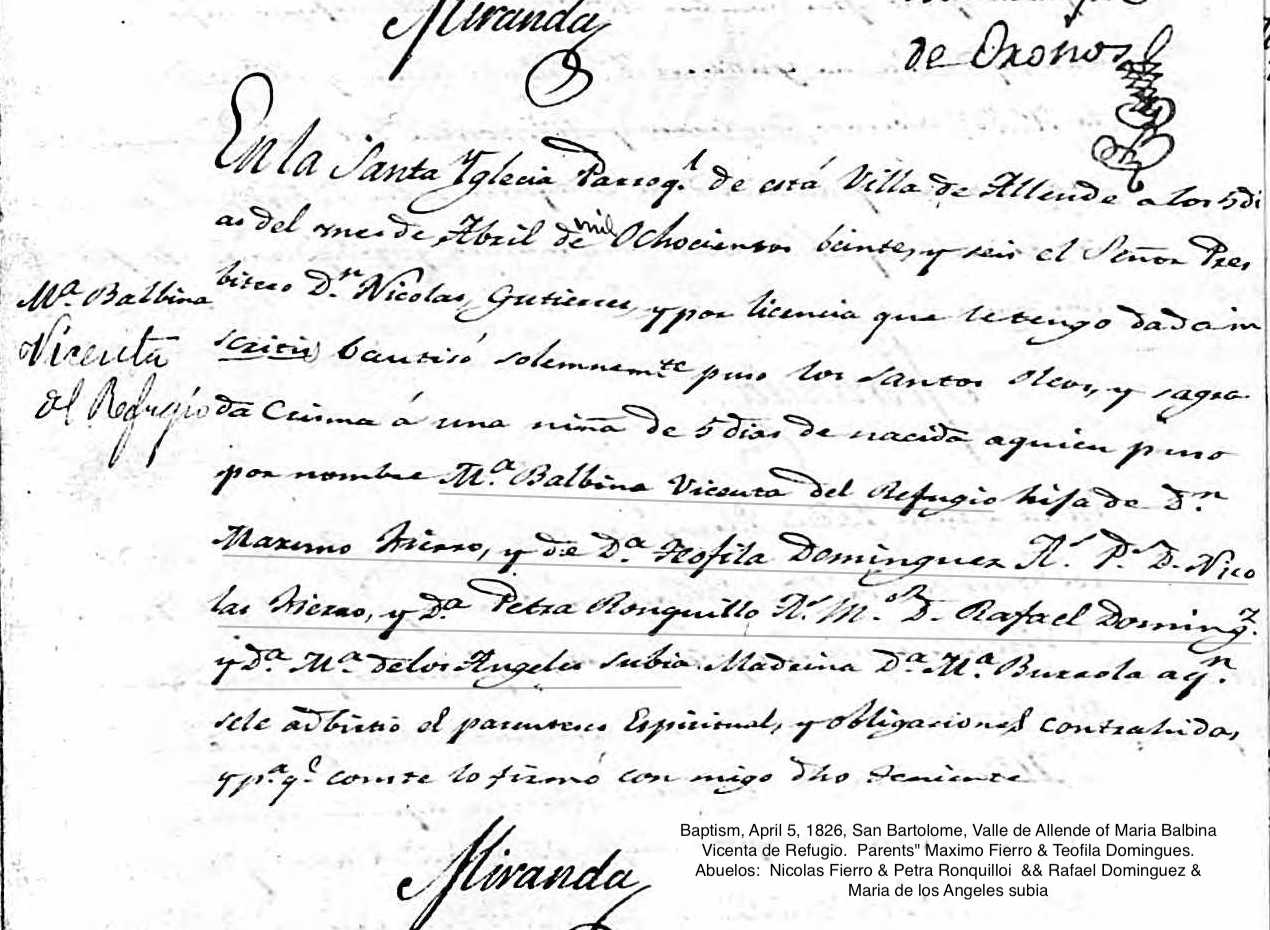 Miranda
de Oroños
En la Santa Yglecia Parroq.l de está Villa de Allende a los 5 di
as del mes de Abril de mil Ochocientos beinte, y seis el Señor Pres
bitero D.n Nicolas Gutierres, y por licencia que le tengo dada in
scritis bautisó solemnem.te puso los santos Oleos, y sagra
da Crisma á una niña de 5 dias de nacida aquien puso
por nombre M.a Balbina Vicenta del Refugio hija de D.n
Maximo Fierro, y de D.a Teofila Dominguez A.s P.s D. Nico
las Fierro, y D.a Petra Ronquillo A.s M.s D. Rafael Doming.z
y D.a M.a delos Angeles subia Madrina D.a M.a Burrola aq.n
sele adbirtio el parentesco Espiritual, y obligaciones contrahidas,
y p.a q.e conste lo firmó con migo dho teniente
M.a Balbina
Vicenta
del Refugio
Miranda
Baptism, April 5, 1826, San Bartolome, Valle de Allende of Maria Balbina
Vicenta de Refugio. Parents" Maximo Fierro & Teofila Domingues.
Abuelos: Nicolas Fierro & Petra Ronquilloi && Rafael Dominguez &
Maria de los Angeles subia